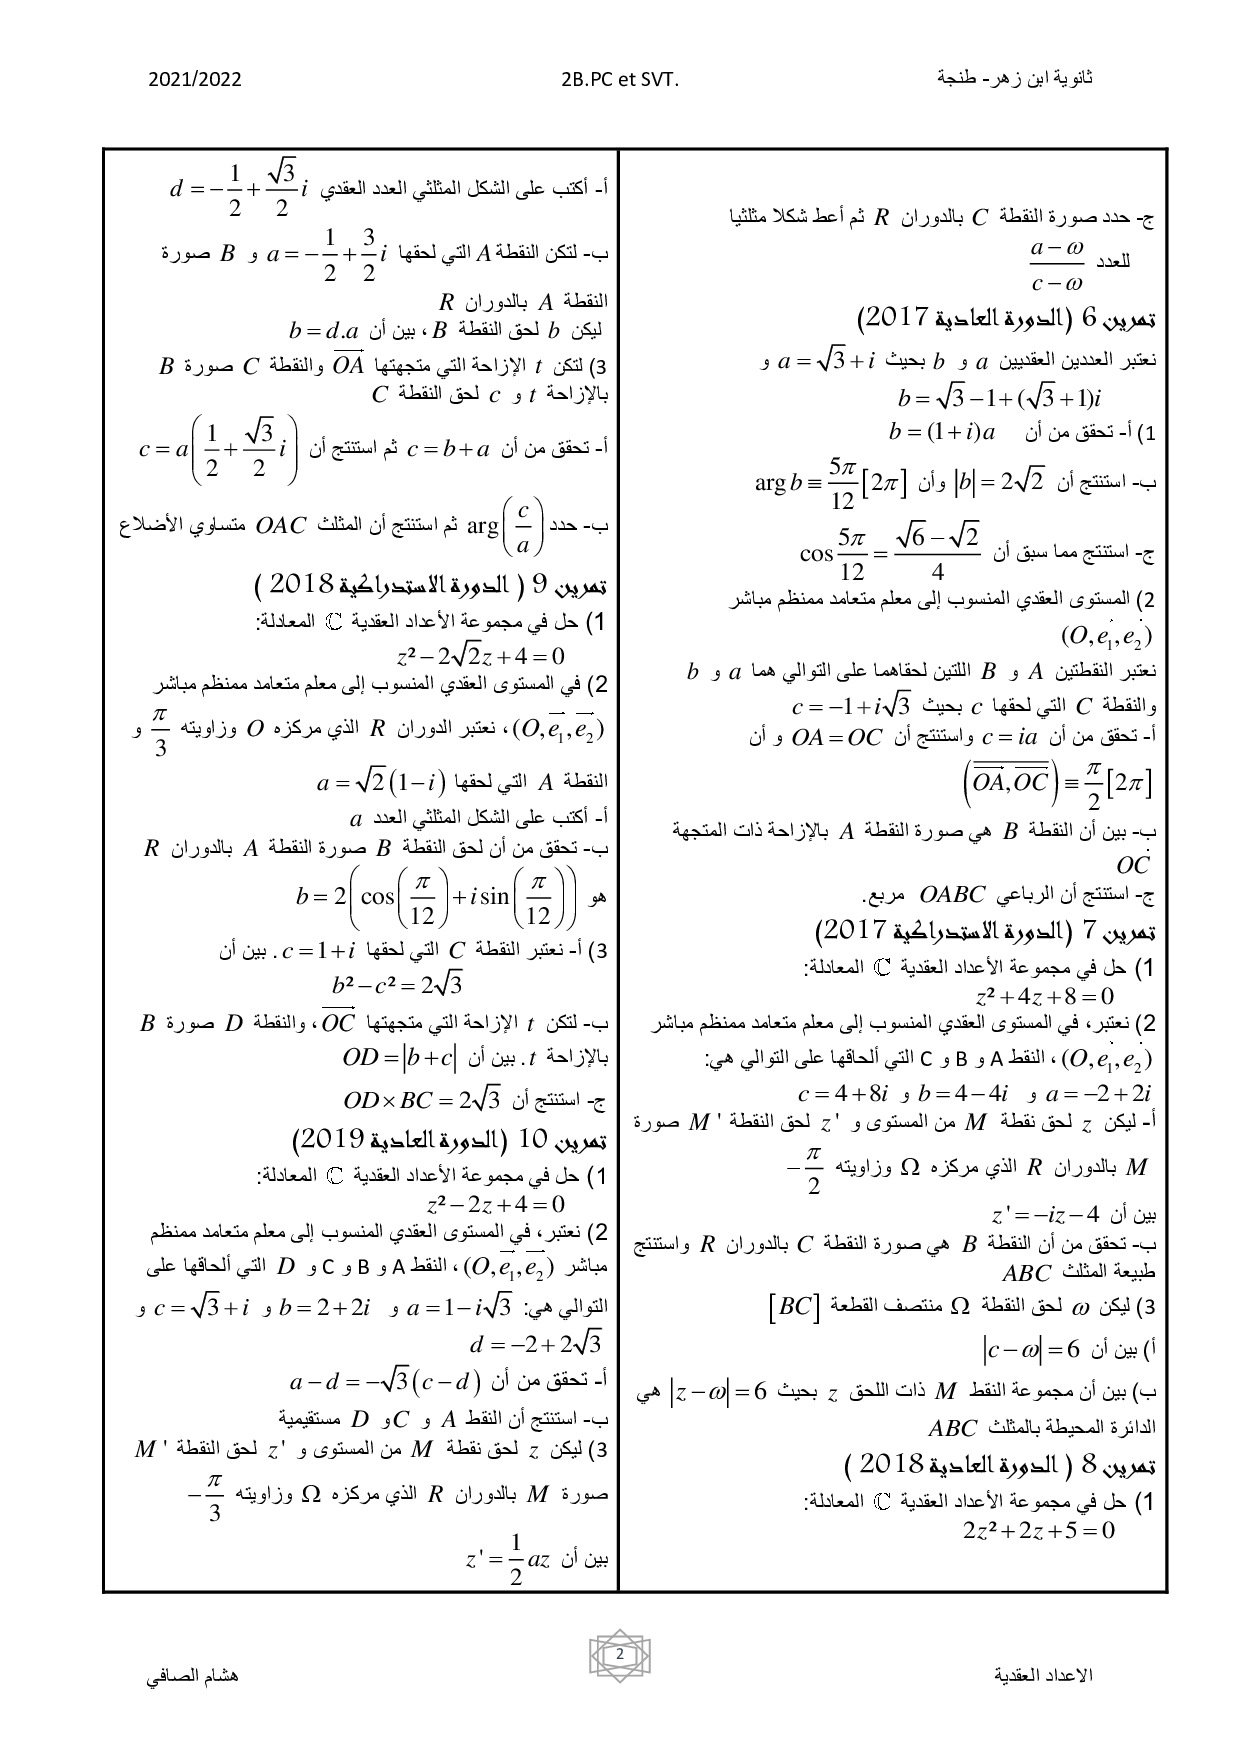 ثانوية ابن زهر- طنجة 2B.PC et SVT. 2021/2022
ج- حدد صورة النقطة C بالدوران R ثم أعط شكلا مثلثيا
للعدد (a − ω)/(c − ω)
تمرين 6 (الدورة العادية 2017)
نعتبر العددين العقديين a و b بحيث a = √3 + i و
b = √3 − 1 + (√3 + 1)i
1) أ- تحقق من أن b = (1 + i)a
ب- استنتج أن |b| = 2√2 وأن arg b ≡ 5π/12 [2π]
ج- استنتج مما سبق أن cos 5π/12 = (√6 − √2)/4
2) المستوى العقدي المنسوب إلى معلم متعامد ممنظم مباشر
(O, e₁, e₂)
نعتبر النقطتين A و B اللتين لحقاهما على التوالي هما a و b
والنقطة C التي لحقها c بحيث c = −1 + i√3
أ- تحقق من أن c = ia واستنتج أن OA = OC و أن
(OA, OC) ≡ π/2 [2π]
ب- بين أن النقطة B هي صورة النقطة A بالإزاحة ذات المتجهة
OC
ج- استنتج أن الرباعي OABC مربع.
تمرين 7 (الدورة الاستدراكية 2017)
1) حل في مجموعة الأعداد العقدية ℂ المعادلة:
z² + 4z + 8 = 0
2) نعتبر، في المستوى العقدي المنسوب إلى معلم متعامد ممنظم مباشر
(O, e₁, e₂) ، النقط A و B و C التي ألحاقها على التوالي هي:
a = −2 + 2i و b = 4 − 4i و c = 4 + 8i
أ- ليكن z لحق نقطة M من المستوى و z' لحق النقطة M' صورة
M بالدوران R الذي مركزه Ω وزاويته −π/2
بين أن z' = −iz − 4
ب- تحقق من أن النقطة B هي صورة النقطة C بالدوران R واستنتج
طبيعة المثلث ABC
3) ليكن ω لحق النقطة Ω منتصف القطعة [BC]
أ) بين أن |c − ω| = 6
ب) بين أن مجموعة النقط M ذات اللحق z بحيث |z − ω| = 6 هي
الدائرة المحيطة بالمثلث ABC
تمرين 8 ( الدورة العادية 2018 )
1) حل في مجموعة الأعداد العقدية ℂ المعادلة:
2z² + 2z + 5 = 0
أ- أكتب على الشكل المثلثي العدد العقدي d = −1/2 + (√3/2)i
ب- لتكن النقطة A التي لحقها a = −1/2 + (3/2)i و B صورة
النقطة A بالدوران R
ليكن b لحق النقطة B ، بين أن b = d.a
3) لتكن t الإزاحة التي متجهتها OA والنقطة C صورة B
بالإزاحة t و c لحق النقطة C
أ- تحقق من أن c = b + a ثم استنتج أن c = a(1/2 + (√3/2)i)
ب- حدد arg(c/a) ثم استنتج أن المثلث OAC متساوي الأضلاع
تمرين 9 ( الدورة الاستدراكية 2018 )
1) حل في مجموعة الأعداد العقدية ℂ المعادلة:
z² − 2√2z + 4 = 0
2) في المستوى العقدي المنسوب إلى معلم متعامد ممنظم مباشر
(O, e₁, e₂) ، نعتبر الدوران R الذي مركزه O وزاويته π/3 و
النقطة A التي لحقها a = √2(1 − i)
أ- أكتب على الشكل المثلثي العدد a
ب- تحقق من أن لحق النقطة B صورة النقطة A بالدوران R
هو b = 2(cos(π/12) + i sin(π/12))
3) أ- نعتبر النقطة C التي لحقها c = 1 + i . بين أن
b² − c² = 2√3
ب- لتكن t الإزاحة التي متجهتها OC ، والنقطة D صورة B
بالإزاحة t . بين أن OD = |b + c|
ج- استنتج أن OD × BC = 2√3
تمرين 10 (الدورة العادية 2019)
1) حل في مجموعة الأعداد العقدية ℂ المعادلة:
z² − 2z + 4 = 0
2) نعتبر، في المستوى العقدي المنسوب إلى معلم متعامد ممنظم
مباشر (O, e₁, e₂) ، النقط A و B و C و D التي ألحاقها على
التوالي هي: a = 1 − i√3 و b = 2 + 2i و c = √3 + i و
d = −2 + 2√3
أ- تحقق من أن a − d = −√3(c − d)
ب- استنتج أن النقط A و C و D مستقيمية
3) ليكن z لحق نقطة M من المستوى و z' لحق النقطة M'
صورة M بالدوران R الذي مركزه Ω وزاويته −π/3
بين أن z' = 1/2 az
2
الاعداد العقدية هشام الصافي